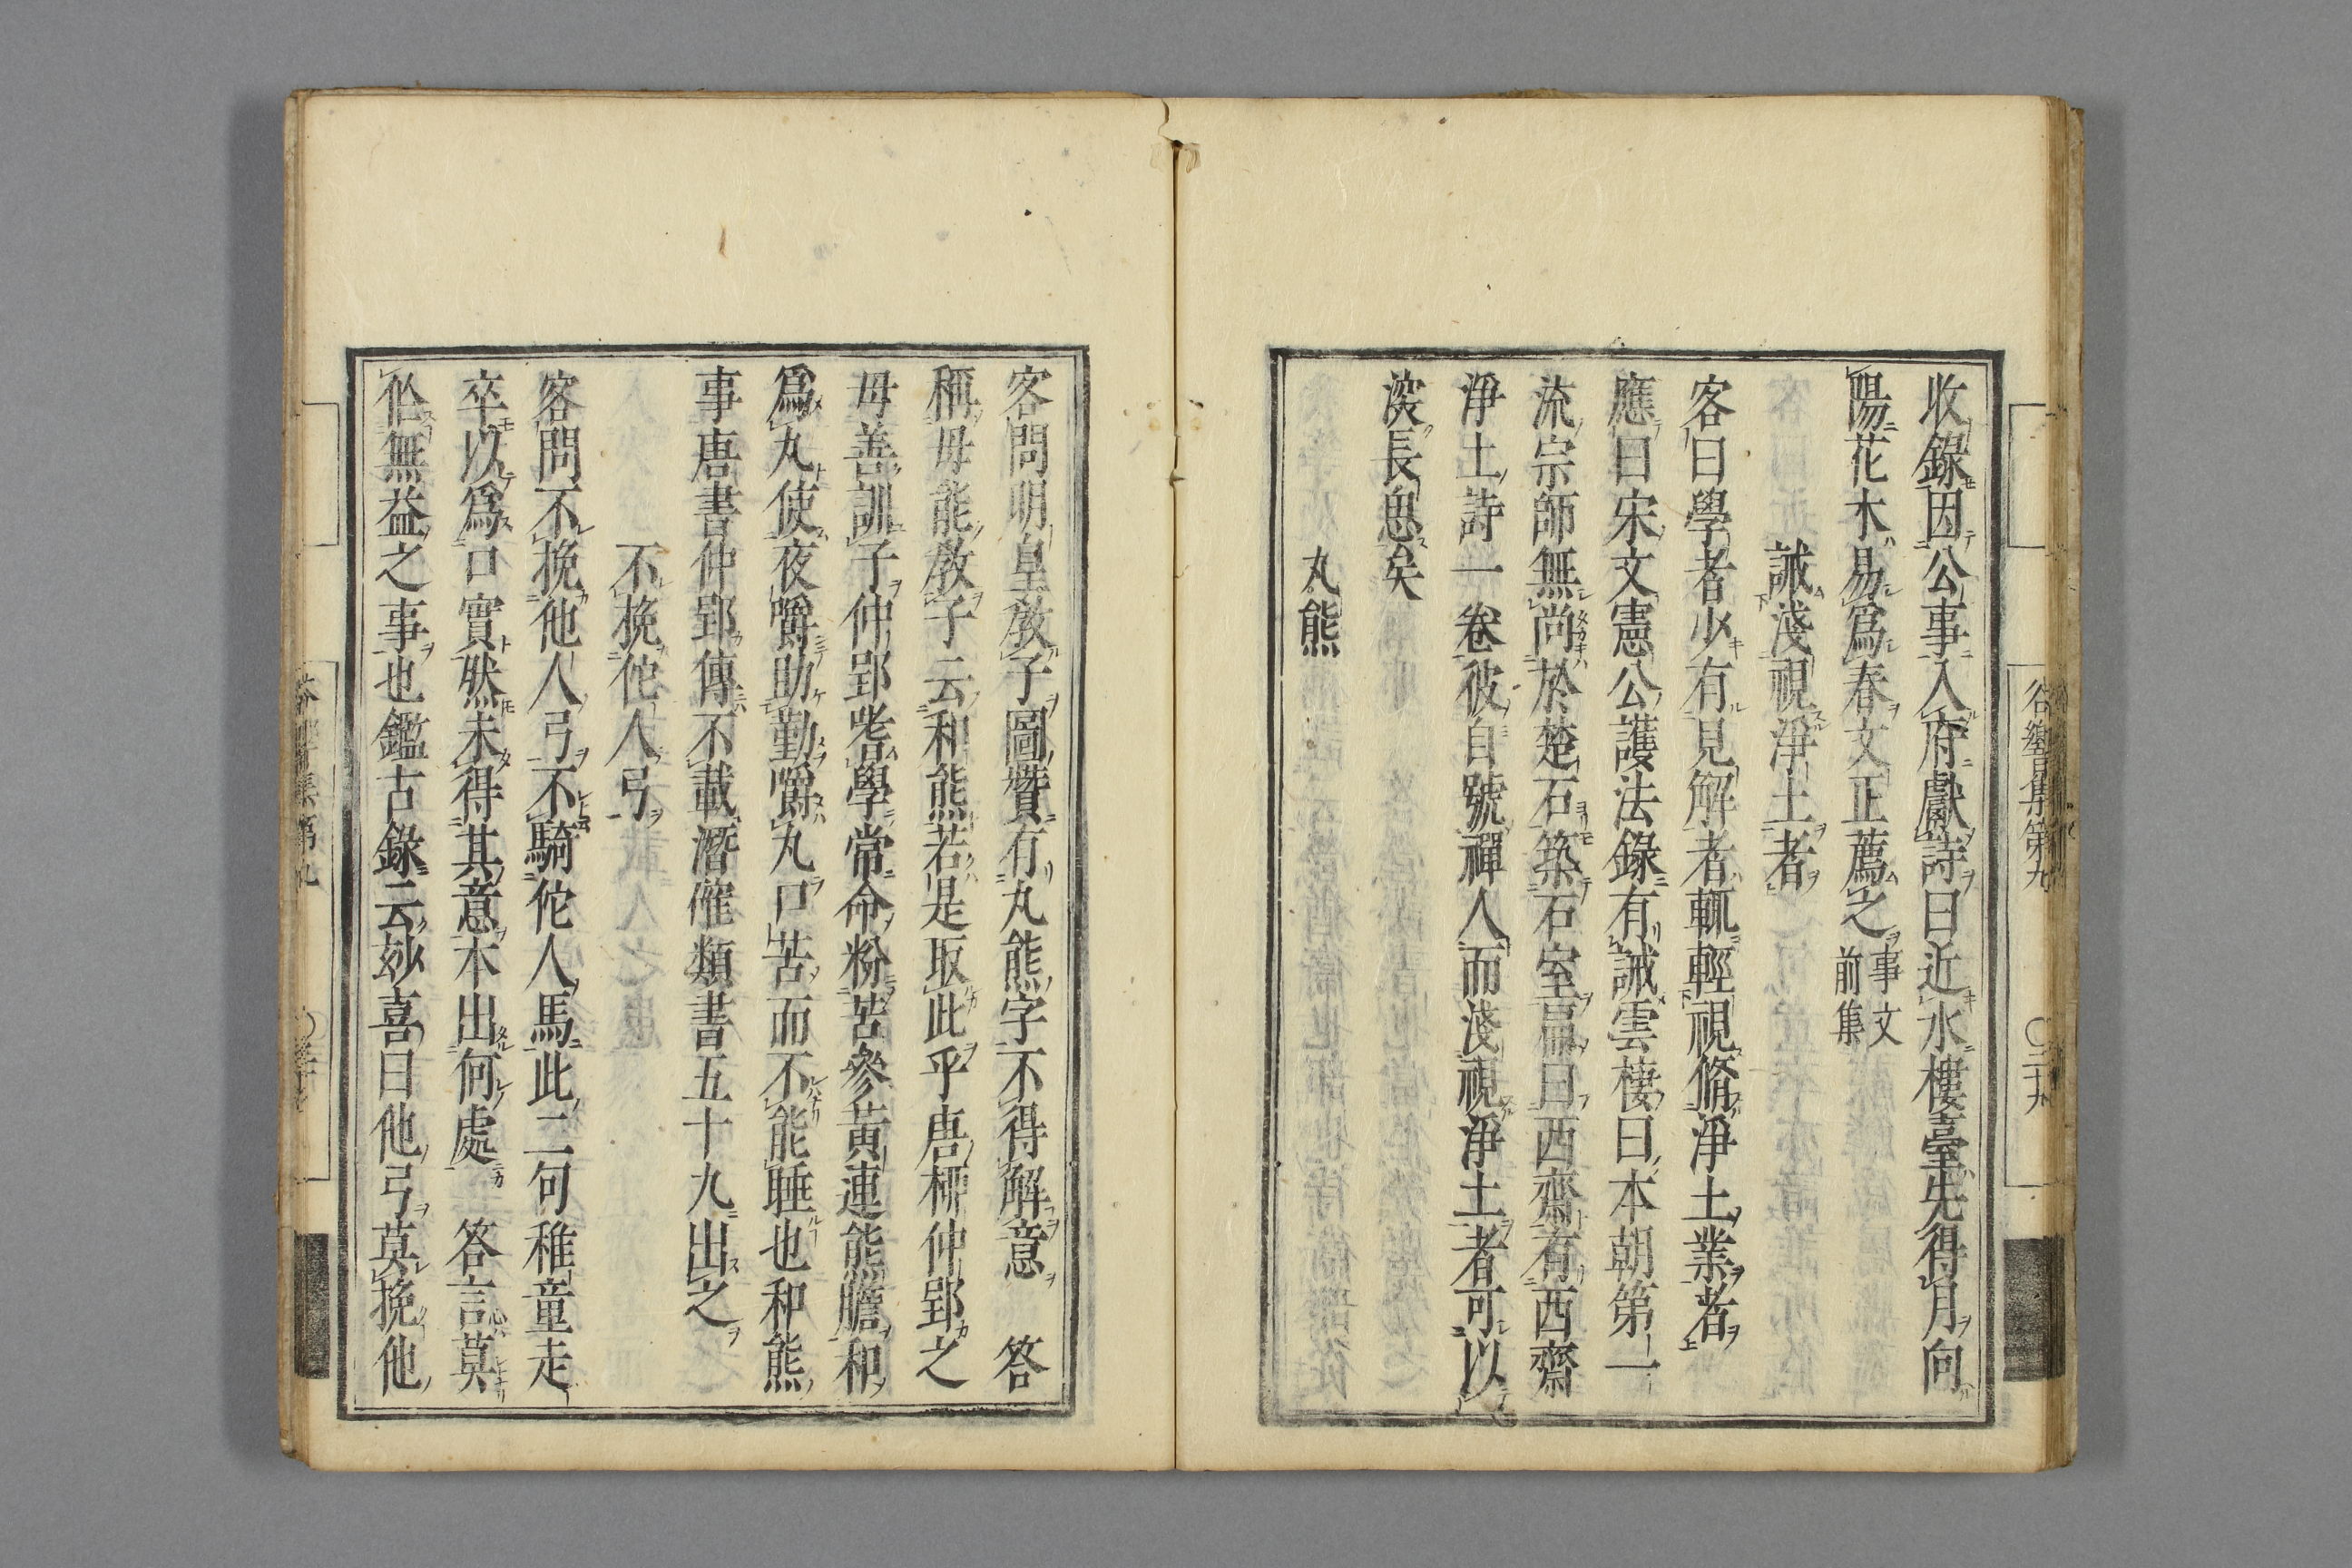 收錄因公事入府獻詩曰近水樓臺先得月向
陽花木易爲春文正薦之事文前集
誡淺視淨土者
客曰學者少有見解者輒輕視脩淨土業者
應曰宋文憲公護法錄有誡雲棲曰本朝第一
流宗師無尚於楚石築石室扁曰西齋有西齋
淨土詩一卷彼自號禪人而淺視淨土者可以
深長思矣
丸熊
客問明皇敎子圖贊有丸熊字不得解意 答
稱毋能敎子云和熊若是取此乎唐柳仲郢之
毋善訓子仲郢嗜學常命粉苦參黃連熊膽和
爲丸使夜嚼助勤嚼丸口苦而不能睡也和熊
事唐書仲郢傳不載潛確類書五十九出之
不挽佗人弓
客問不挽他人弓不騎佗人馬此二句稚童走
卒以爲口實然未得其意本出何處 答言莫
佗無益之事也鑑古錄云妙喜曰他弓莫挽他
谷響集第九